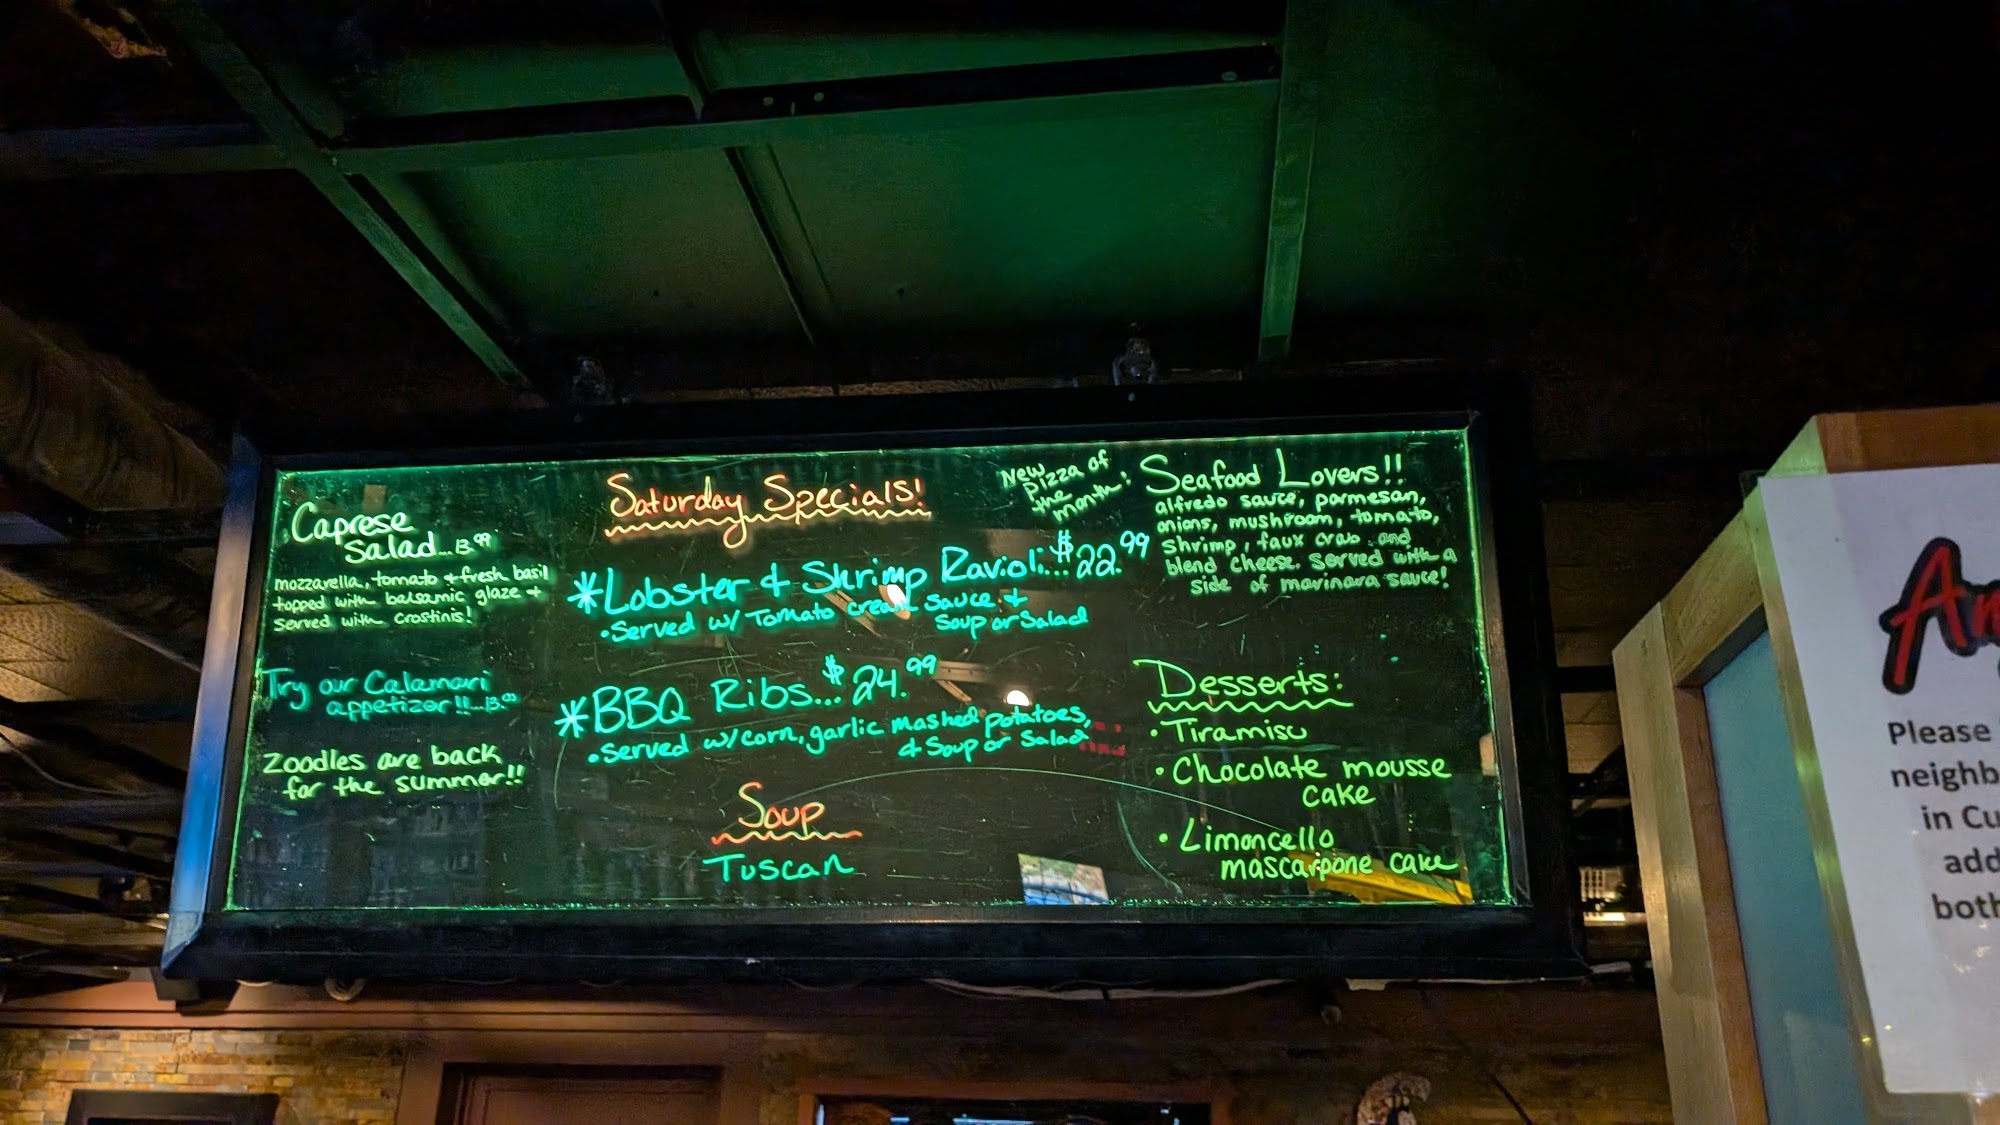 Caprese
Salad...13.99
mozzarella, tomato & fresh basil
topped with balsamic glaze &
served with crostinis!
Try our Calamari
appetizer!!...13.99
Zoodles are back
for the summer!!
Saturday Specials!
*Lobster & Shrimp Ravioli...$22.99
•Served w/ Tomato cream sauce &
Soup or Salad
*BBQ Ribs...$24.99
•Served w/corn, garlic mashed potatoes,
& Soup or Salad
Soup
Tuscan
New
Pizza of
the
month:
Seafood Lovers!!
alfredo sauce, parmesan,
onions, mushroom, tomato,
shrimp, faux crab and
blend cheese. Served with a
side of marinara sauce!
Desserts:
•Tiramisu
•Chocolate mousse
cake
•Limoncello
mascarpone cake
Please
neighb
in Cu
add
both